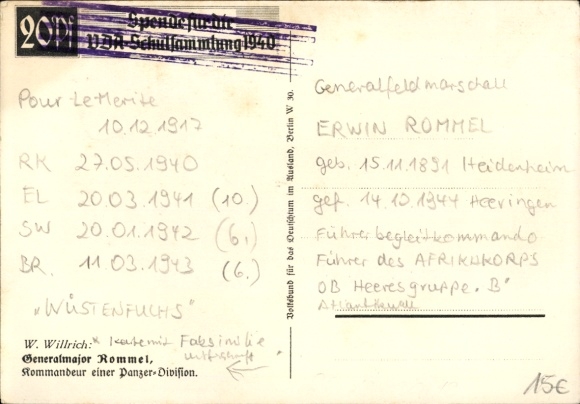 20 Pf
Spende für die
VDA-Schulsammlung 1940
Pour Le Merite
10.12.1917
RK 27.05.1940
EL 20.03.1941 (10.)
SW 20.01.1942 (6.)
BR. 11.03.1943 (6.)
„WÜSTENFUCHS"
W. Willrich: * Karte mit Faksimilie
unterschrift
Generalmajor Rommel,
Kommandeur einer Panzer-Division.
Volksbund für das Deutschtum im Ausland, Berlin W 30.
Generalfeldmarschall
ERWIN ROMMEL
geb. 15.11.1891 Heidenheim
gef. 14.10.1944 Heeringen
Führerbegleitkommando
Führer des AFRIKAKORPS
OB Heeresgruppe „B"
Atlantikwall
15€